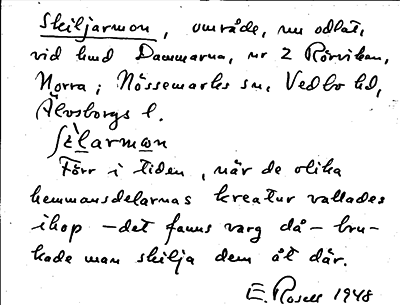 Skiljarmon, område, nu odlat,
vid hmd Dammarna, nr 2 Rörviken,
Norra; Nössemarks sn, Vedbo hd,
Älvsborgs l.
ʃèlarmon
Förr i tiden, när de olika
hemmansdelarnas kreatur vallades
ihop – det fanns varg då – bru-
kade man skilja dem åt där.
E. Rosell 1948